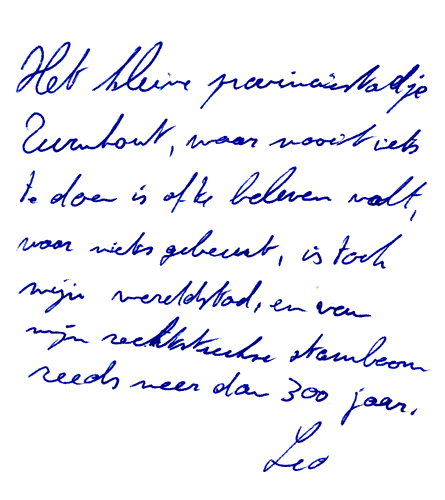 Het kleine provinciestadje
Turnhout, waar nooit iets
te doen is of te beleven valt,
waar niets gebeurt, is toch
mijn wereldstad, en van
mijn rechtstreekse stamboom
reeds meer dan 300 jaar.
Leo